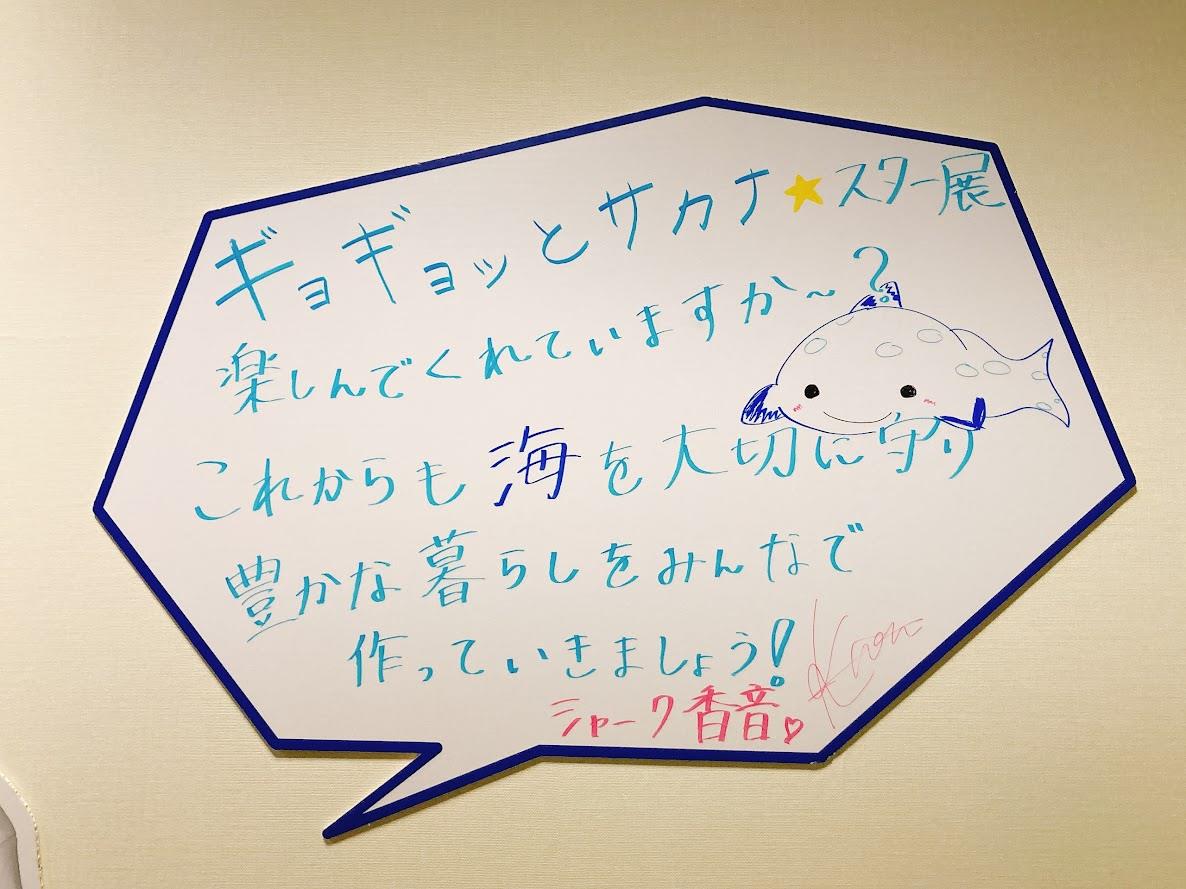 ギョギョッとサカナ★スター展
楽しんでくれていますか〜?
これからも海を大切に守り
豊かな暮らしをみんなで
作っていきましょう!
シャーク香音♡